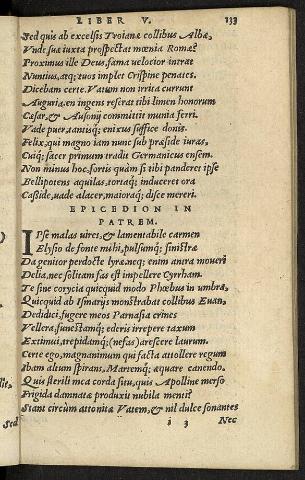 LIBER V. 133
Sed quis ab excelsis Troianæ collibus Albæ,
Vnde suæ iuxta prospectat mœnia Romæ?
Proximus ille Deus, fama velocior intrat
Nuntius, atq; tuos implet Crispine penates.
Dicebam certe. Vatum non irrita currunt
Auguria, en ingens reserat tibi limen honorum
Cæsar, & Ausonij committit munia ferri.
Vade puer, tantisq; enixus suffice donis.
Felix, qui magno iam nunc sub præside iuras,
Cuiq; sacer primum tradit Germanicus ensem.
Non minus hoc, fortis quàm si tibi panderet ipse
Bellipotens aquilas, toruaq; induceret ora
Caßide, vade alacer, maioraq; disce mereri.
EPICEDION IN
PATREM.
IPse malas uires, & lamentabile carmen
Elysio de fonte mihi, pulsumq; sinistræ
Da genitor perdocte lyræ, neq; enim antra moueri
Delia, nec solitam fas est impellere Cyrrham.
Te sine corycia quicquid modo Phœbus in umbra,
Quicquid ab Ismarijs monstrabat collibus Euan,
Dedidici, fugere meos Parnasia crines
Vellera, funestamq; ederis irrepere taxum
Extimui, trepidamq; (nefas) arescere laurum.
Certe ego, magnanimum qui facta attollere regum
Ibam altum spirans, Martemq; æquare canendo.
Quis sterili mea corda situ, quis Apolline merso
Frigida damnatæ produxit nubila menti?
Stant circùm attonitæ Vatem, & nil dulce sonantes
i 3 Nec
Sed